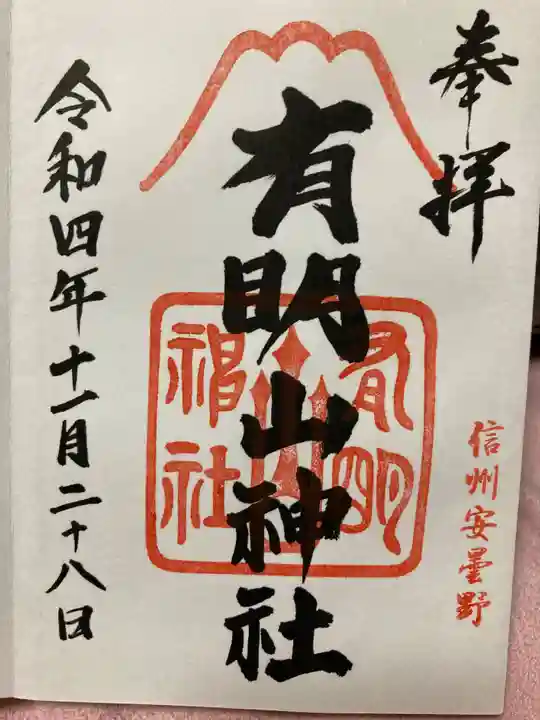 奉拝
信州安曇野
有明山神社
有明
山
神社
令和四年十一月二十八日